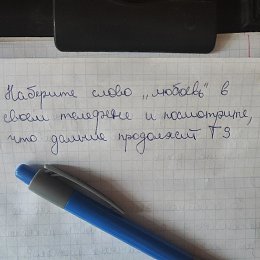 Наберите слово „любовь" в
своем телефоне и посмотрите,
что дальше продолжит Т9